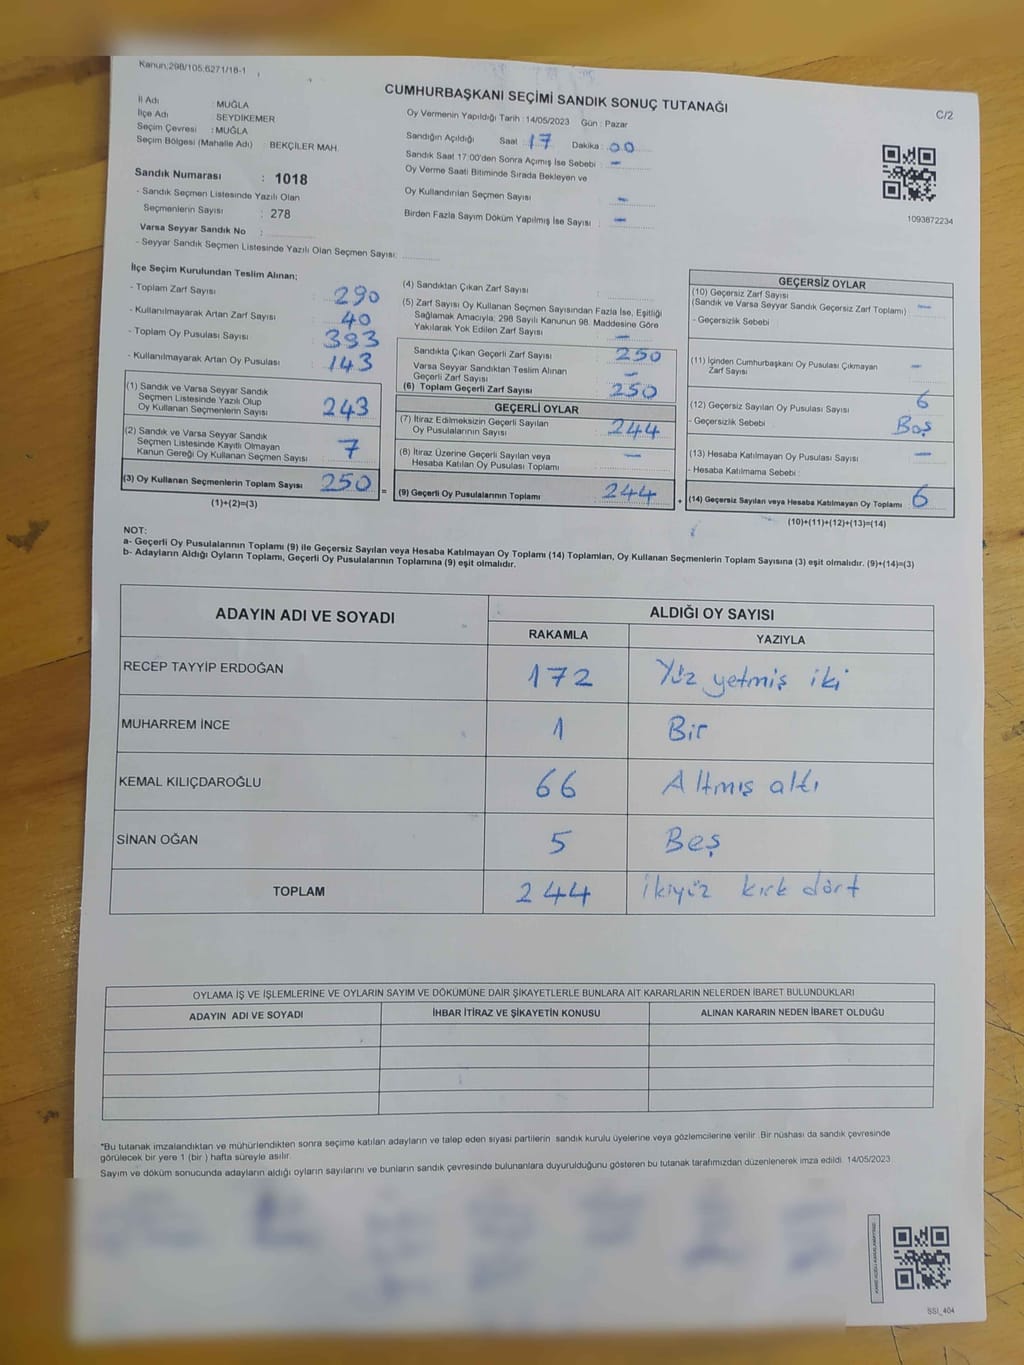 Kanun:298/105:6271/18-1
CUMHURBAŞKANI SEÇİMİ SANDIK SONUÇ TUTANAĞI
C/2
İl Adı : MUĞLA
İlçe Adı : SEYDİKEMER
Seçim Çevresi : MUĞLA
Seçim Bölgesi (Mahalle Adı) : BEKÇİLER MAH.
Oy Vermenin Yapıldığı Tarih : 14/05/2023 Gün : Pazar
Sandığın Açıldığı Saat : 17 Dakika : 00
Sandık Saat 17:00'den Sonra Açımış İse Sebebi : -
Oy Verme Saati Bitiminde Sırada Bekleyen ve
Oy Kullandırılan Seçmen Sayısı : -
Birden Fazla Sayım Döküm Yapılmış İse Sayısı : -
1093872234
Sandık Numarası : 1018
- Sandık Seçmen Listesinde Yazılı Olan
Seçmenlerin Sayısı : 278
Varsa Seyyar Sandık No :
- Seyyar Sandık Seçmen Listesinde Yazılı Olan Seçmen Sayısı:
İlçe Seçim Kurulundan Teslim Alınan;
- Toplam Zarf Sayısı : 290
- Kullanılmayarak Artan Zarf Sayısı : 40
- Toplam Oy Pusulası Sayısı : 393
- Kullanılmayarak Artan Oy Pusulası : 143
(1) Sandık ve Varsa Seyyar Sandık
Seçmen Listesinde Yazılı Olup
Oy Kullanan Seçmenlerin Sayısı 243
(2) Sandık ve Varsa Seyyar Sandık
Seçmen Listesinde Kayıtlı Olmayan
Kanun Gereği Oy Kullanan Seçmen Sayısı 7
(3) Oy Kullanan Seçmenlerin Toplam Sayısı 250 =
(1)+(2)=(3)
(4) Sandıktan Çıkan Zarf Sayısı :
(5) Zarf Sayısı Oy Kullanan Seçmen Sayısından Fazla İse, Eşitliği
Sağlamak Amacıyla; 298 Sayılı Kanunun 98. Maddesine Göre
Yakılarak Yok Edilen Zarf Sayısı : -
Sandıkta Çıkan Geçerli Zarf Sayısı : 250
Varsa Seyyar Sandıktan Teslim Alınan
Geçerli Zarf Sayısı : -
(6) Toplam Geçerli Zarf Sayısı : 250
GEÇERLİ OYLAR
(7) İtiraz Edilmeksizin Geçerli Sayılan
Oy Pusulalarının Sayısı : 244
(8) İtiraz Üzerine Geçerli Sayılan veya
Hesaba Katılan Oy Pusulası Toplamı : -
(9) Geçerli Oy Pusulalarının Toplamı : 244 +
GEÇERSİZ OYLAR
(10) Geçersiz Zarf Sayısı
(Sandık ve Varsa Seyyar Sandık Geçersiz Zarf Toplamı) : -
- Geçersizlik Sebebi :
(11) İçinden Cumhurbaşkanı Oy Pusulası Çıkmayan
Zarf Sayısı : -
(12) Geçersiz Sayılan Oy Pusulası Sayısı : 6
- Geçersizlik Sebebi : Boş
(13) Hesaba Katılmayan Oy Pusulası Sayısı : -
- Hesaba Katılmama Sebebi :
(14) Geçersiz Sayılan veya Hesaba Katılmayan Oy Toplamı : 6
(10)+(11)+(12)+(13)=(14)
NOT:
a- Geçerli Oy Pusulalarının Toplamı (9) ile Geçersiz Sayılan veya Hesaba Katılmayan Oy Toplamı (14) Toplamları, Oy Kullanan Seçmenlerin Toplam Sayısına (3) eşit olmalıdır. (9)+(14)=(3)
b- Adayların Aldığı Oyların Toplamı, Geçerli Oy Pusulalarının Toplamına (9) eşit olmalıdır.
ADAYIN ADI VE SOYADI
ALDIĞI OY SAYISI
RAKAMLA YAZIYLA
RECEP TAYYİP ERDOĞAN 172 Yüz yetmiş iki
MUHARREM İNCE 1 Bir
KEMAL KILIÇDAROĞLU 66 Altmış altı
SİNAN OĞAN 5 Beş
TOPLAM 244 ikiyüz kırk dört
OYLAMA İŞ VE İŞLEMLERİNE VE OYLARIN SAYIM VE DÖKÜMÜNE DAİR ŞİKAYETLERLE BUNLARA AİT KARARLARIN NELERDEN İBARET BULUNDUKLARI
ADAYIN ADI VE SOYADI İHBAR İTİRAZ VE ŞİKAYETİN KONUSU ALINAN KARARIN NEDEN İBARET OLDUĞU
*Bu tutanak imzalandıktan ve mühürlendikten sonra seçime katılan adayların ve talep eden siyasi partilerin sandık kurulu üyelerine veya gözlemcilerine verilir. Bir nüshası da sandık çevresinde
görülecek bir yere 1 (bir ) hafta süreyle asılır.
Sayım ve döküm sonucunda adayların aldığı oyların sayılarını ve bunların sandık çevresinde bulunanlara duyurulduğunu gösteren bu tutanak tarafımızdan düzenlenerek imza edildi. 14/05/2023
SSI_404